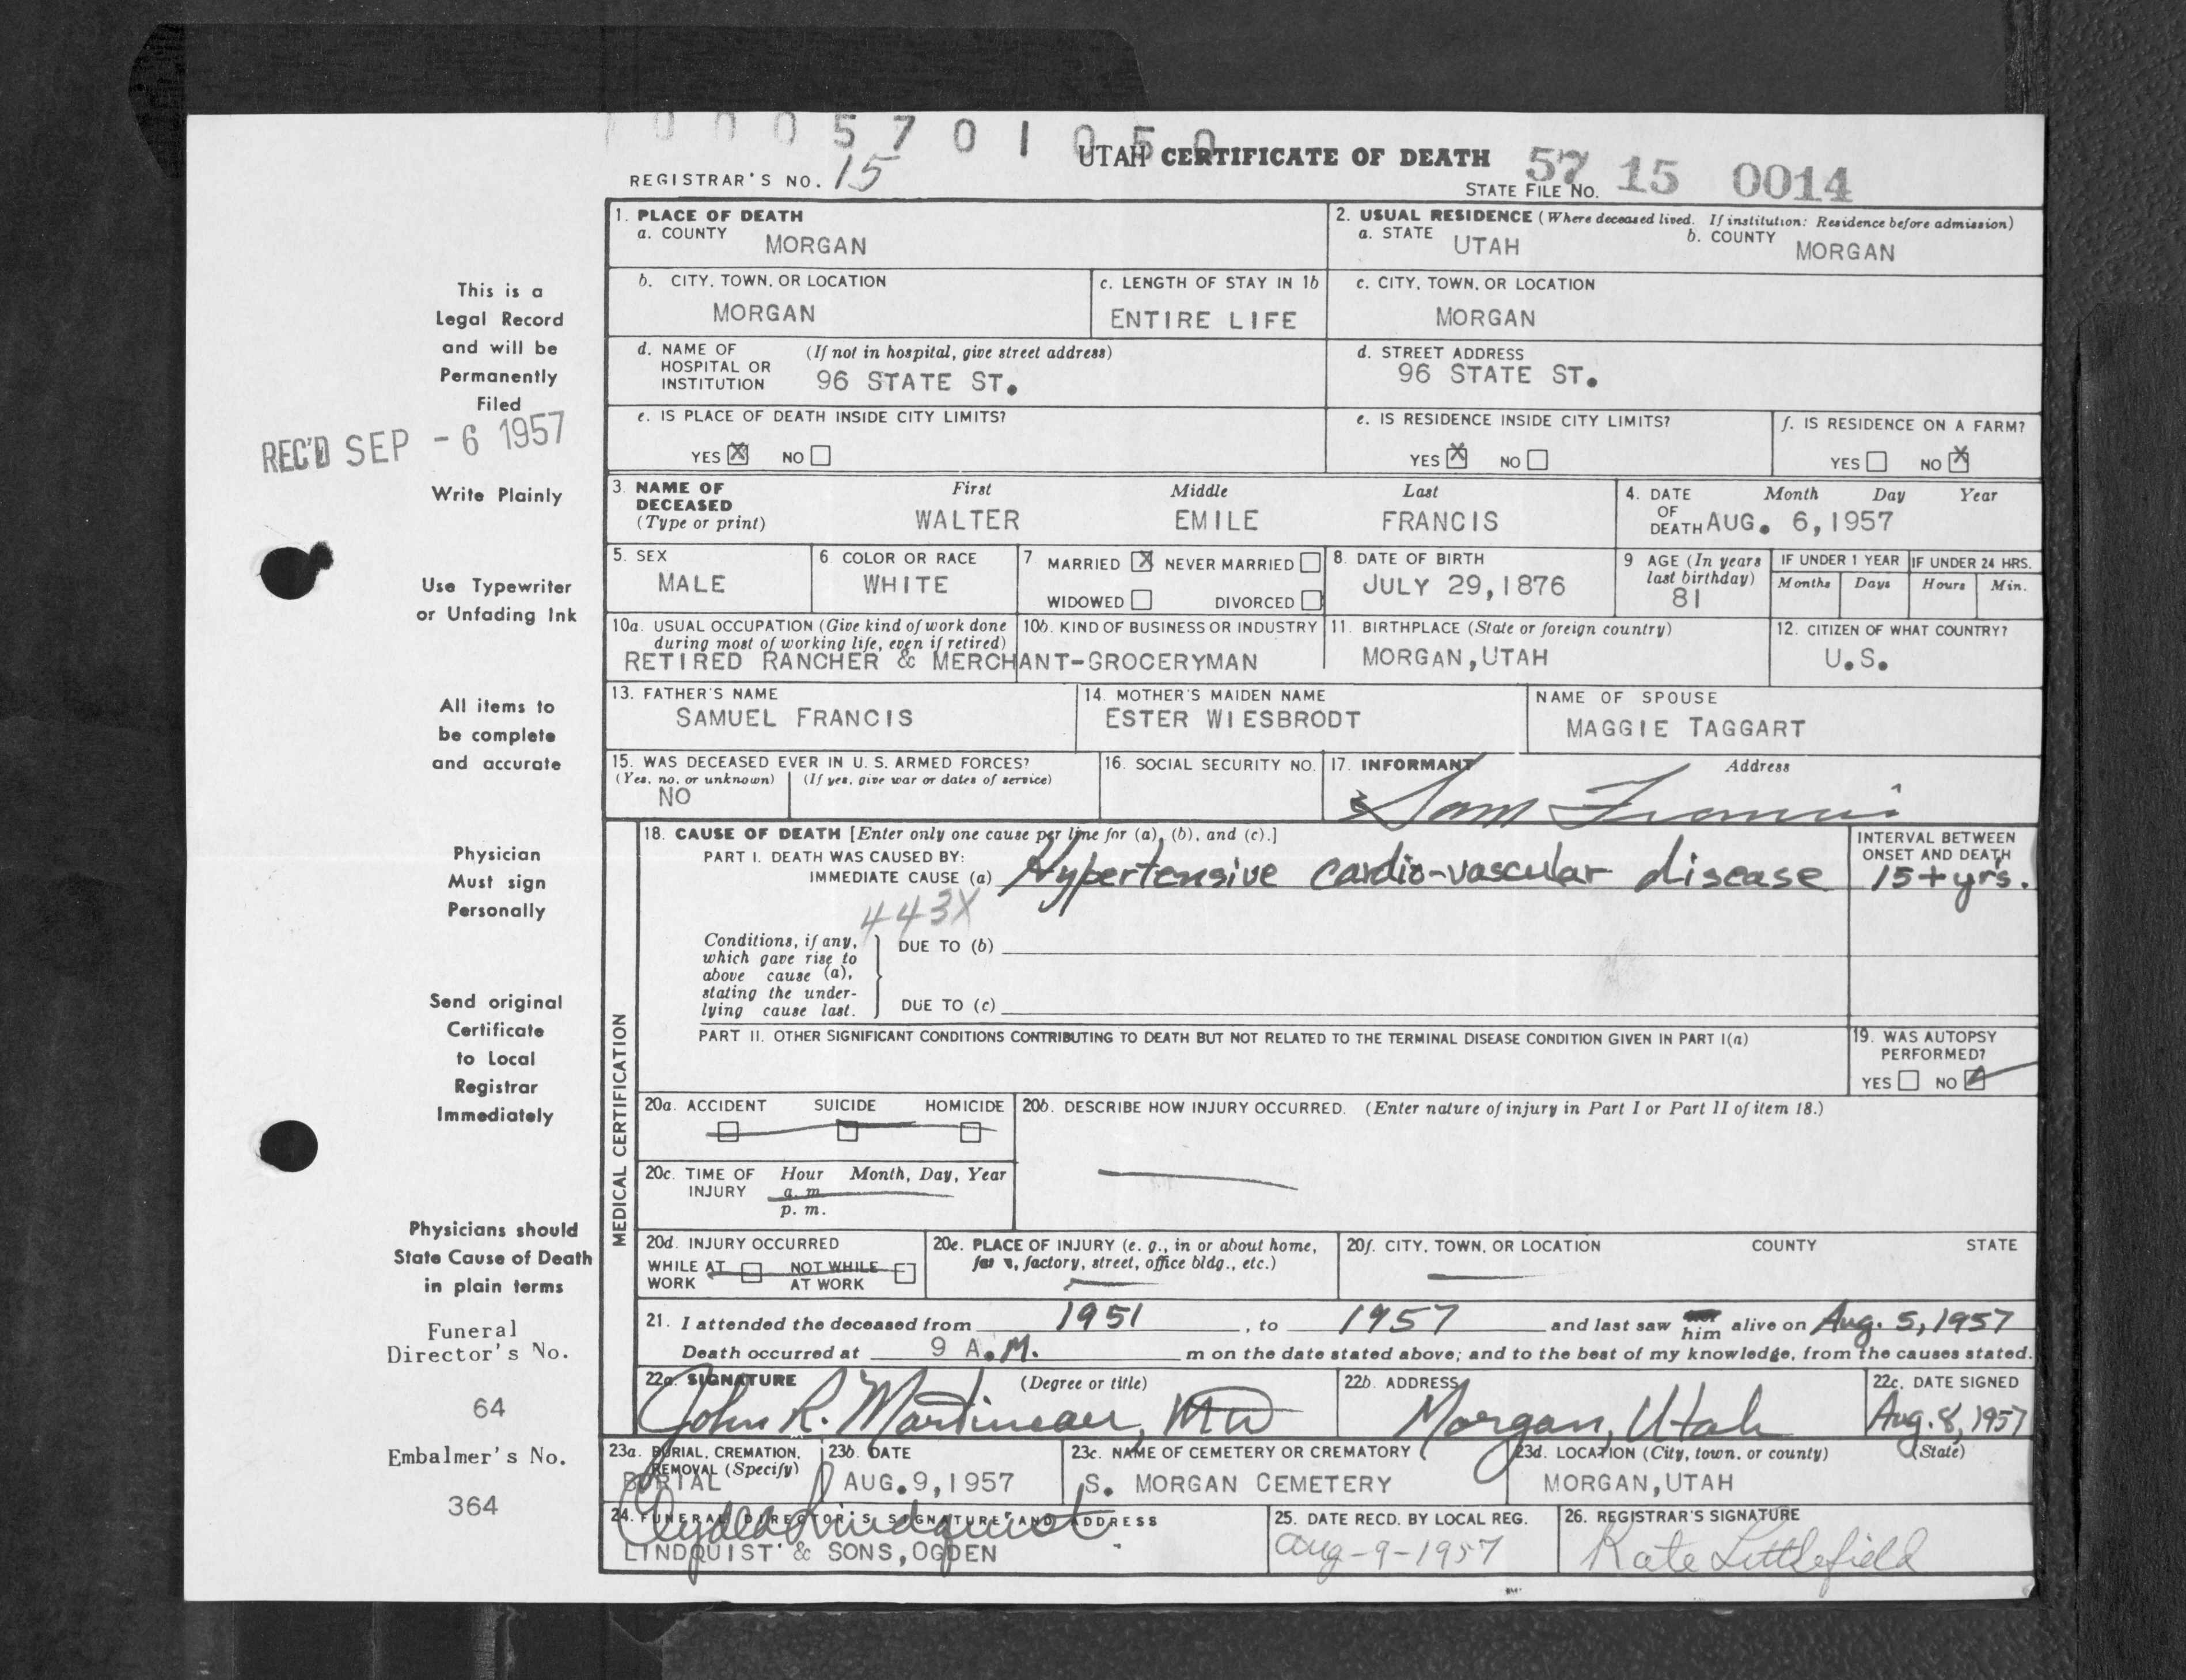 0 0 0 5 7 0 1 0 5 0
UTAH CERTIFICATE OF DEATH
REGISTRAR'S NO. 15
STATE FILE NO. 57 15 0014
1. PLACE OF DEATH
a. COUNTY MORGAN
2. USUAL RESIDENCE (Where deceased lived. If institution: Residence before admission)
a. STATE UTAH b. COUNTY MORGAN
b. CITY, TOWN, OR LOCATION
MORGAN
c. LENGTH OF STAY IN 1b
ENTIRE LIFE
c. CITY, TOWN, OR LOCATION
MORGAN
d. NAME OF HOSPITAL OR INSTITUTION (If not in hospital, give street address)
96 STATE ST.
d. STREET ADDRESS
96 STATE ST.
e. IS PLACE OF DEATH INSIDE CITY LIMITS?
YES X NO
e. IS RESIDENCE INSIDE CITY LIMITS?
YES X NO
f. IS RESIDENCE ON A FARM?
YES NO X
3. NAME OF DECEASED (Type or print)
First Middle Last
WALTER EMILE FRANCIS
4. DATE OF DEATH Month Day Year
AUG. 6,1957
5. SEX
MALE
6. COLOR OR RACE
WHITE
7. MARRIED X NEVER MARRIED
WIDOWED DIVORCED
8. DATE OF BIRTH
JULY 29,1876
9 AGE (In years last birthday)
81
IF UNDER 1 YEAR
Months Days
IF UNDER 24 HRS.
Hours Min.
10a. USUAL OCCUPATION (Give kind of work done during most of working life, even if retired)
10b. KIND OF BUSINESS OR INDUSTRY
RETIRED RANCHER & MERCHANT-GROCERYMAN
11. BIRTHPLACE (State or foreign country)
MORGAN,UTAH
12. CITIZEN OF WHAT COUNTRY?
U.S.
13. FATHER'S NAME
SAMUEL FRANCIS
14. MOTHER'S MAIDEN NAME
ESTER WIESBRODT
NAME OF SPOUSE
MAGGIE TAGGART
15. WAS DECEASED EVER IN U. S. ARMED FORCES?
(Yes, no, or unknown) (If yes, give war or dates of service)
NO
16. SOCIAL SECURITY NO.
17. INFORMANT Address
Sam Francis
MEDICAL CERTIFICATION
18. CAUSE OF DEATH [Enter only one cause per line for (a), (b), and (c).]
PART I. DEATH WAS CAUSED BY:
IMMEDIATE CAUSE (a) Hypertensive cardio-vascular disease
443X
INTERVAL BETWEEN ONSET AND DEATH
15+ yrs.
Conditions, if any, which gave rise to above cause (a), stating the underlying cause last.
DUE TO (b)
DUE TO (c)
PART II. OTHER SIGNIFICANT CONDITIONS CONTRIBUTING TO DEATH BUT NOT RELATED TO THE TERMINAL DISEASE CONDITION GIVEN IN PART I(a)
19. WAS AUTOPSY PERFORMED?
YES NO
20a. ACCIDENT SUICIDE HOMICIDE
20b. DESCRIBE HOW INJURY OCCURRED. (Enter nature of injury in Part I or Part II of item 18.)
20c. TIME OF INJURY Hour Month, Day, Year
a. m.
p. m.
20d. INJURY OCCURRED
WHILE AT WORK NOT WHILE AT WORK
20e. PLACE OF INJURY (e. g., in or about home, factory, street, office bldg., etc.)
20f. CITY, TOWN, OR LOCATION COUNTY STATE
21. I attended the deceased from 1951, to 1957 and last saw him alive on Aug. 5, 1957
Death occurred at 9 A.M. m on the date stated above; and to the best of my knowledge, from the causes stated.
22a. SIGNATURE (Degree or title)
John R. Martineau, MD
22b. ADDRESS
Morgan, Utah
22c. DATE SIGNED
Aug. 8, 1957
23a. BURIAL, CREMATION, REMOVAL (Specify)
BURIAL
23b. DATE
AUG.9,1957
23c. NAME OF CEMETERY OR CREMATORY
S. MORGAN CEMETERY
23d. LOCATION (City, town, or county) (State)
MORGAN,UTAH
24. FUNERAL DIRECTOR'S SIGNATURE AND ADDRESS
Lindquist
LINDQUIST & SONS,OGDEN
25. DATE RECD. BY LOCAL REG.
Aug-9-1957
26. REGISTRAR'S SIGNATURE
Kate Littlefield
This is a
Legal Record
and will be
Permanently
Filed
REC'D SEP -6 1957
Write Plainly
Use Typewriter
or Unfading Ink
All items to
be complete
and accurate
Physician
Must sign
Personally
Send original
Certificate
to Local
Registrar
Immediately
Physicians should
State Cause of Death
in plain terms
Funeral
Director's No.
64
Embalmer's No.
364